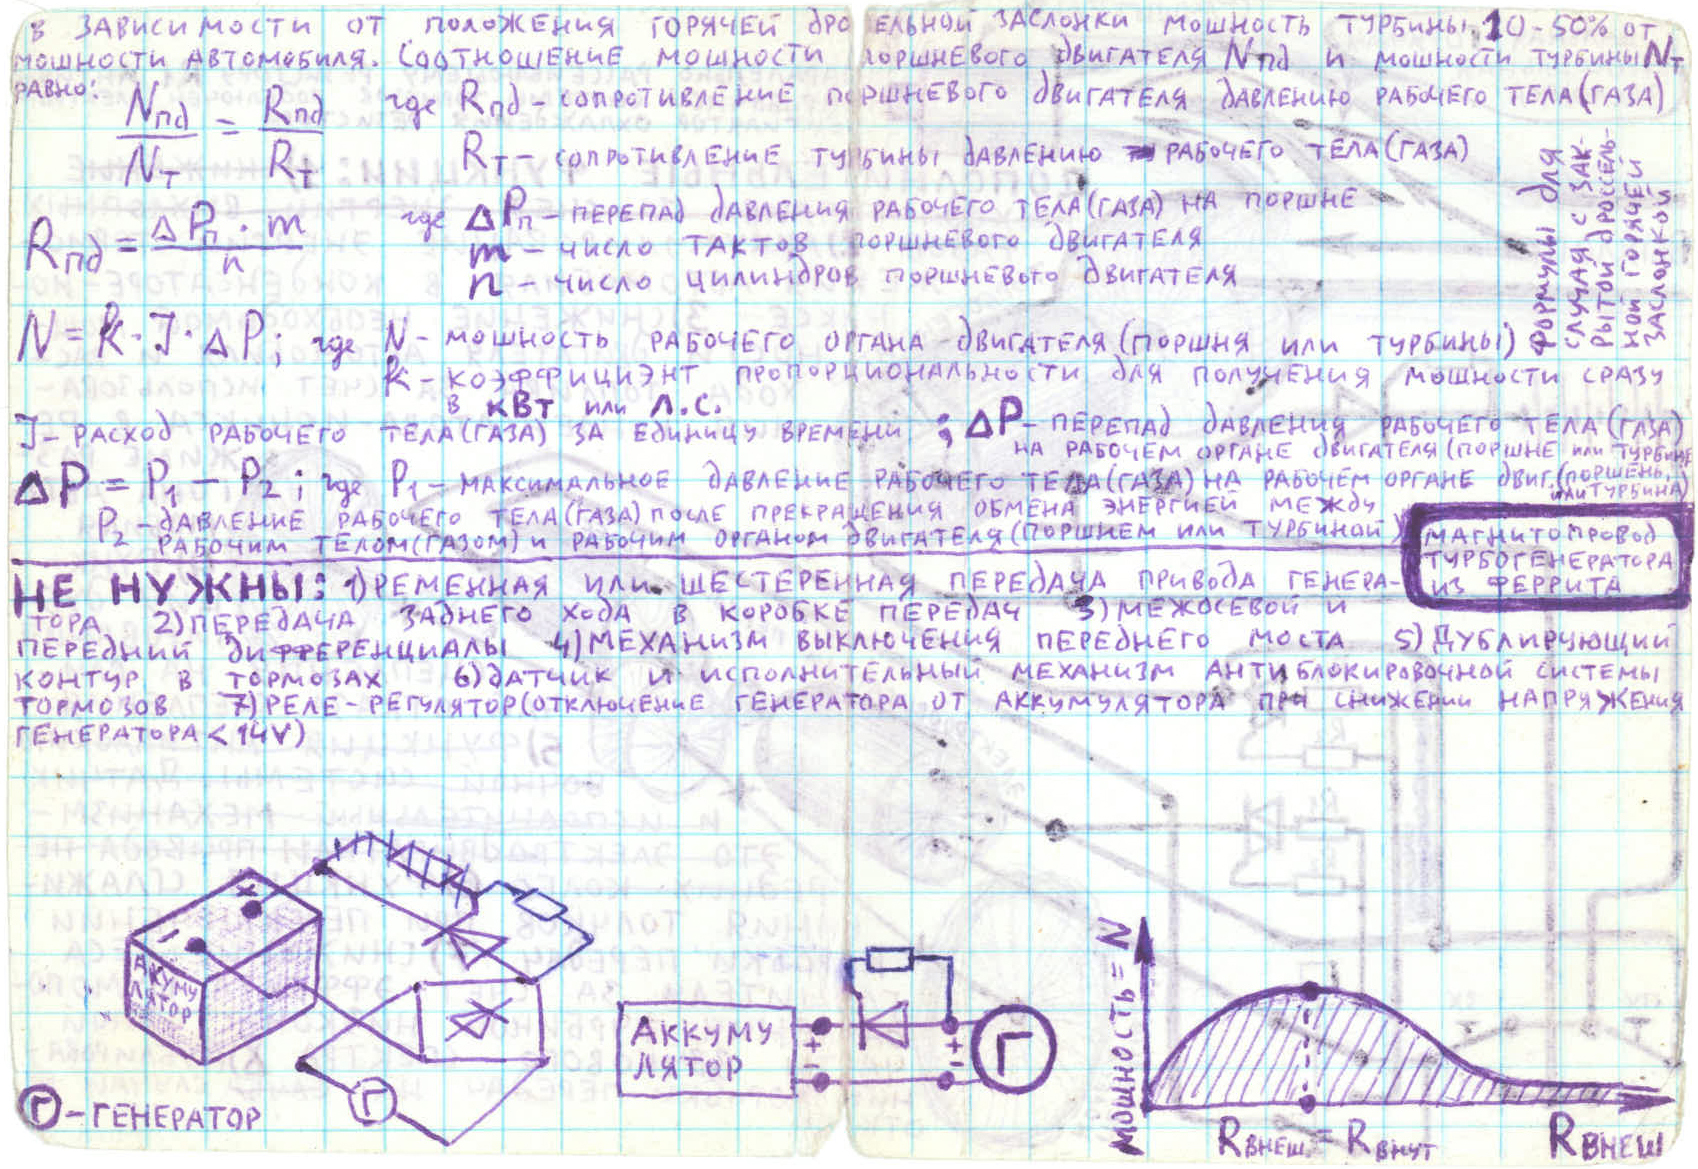 В ЗАВИСИМОСТИ ОТ ПОЛОЖЕНИЯ ГОРЯЧЕЙ ДРО ЕЛЬНОЙ ЗАСЛОНКИ МОШНОСТЬ ТУРБИНЫ 10-50% ОТ
МОШНОСТИ АВТОМОБИЛЯ. СООТНОШЕНИЕ МОШНОСТИ ПОРШНЕВОГО ДВИГАТЕЛЯ Nпд И МОШНОСТИ ТУРБИНЫ Nт
РАВНО:
Nпд / Nт = Rпд / Rт
где Rпд - СОПРОТИВЛЕНИЕ ПОРШНЕВОГО ДВИГАТЕЛЯ ДАВЛЕНИЮ РАБОЧЕГО ТЕЛА(ГАЗА)
Rт - СОПРОТИВЛЕНИЕ ТУРБИНЫ ДАВЛЕНИЮ РАБОЧЕГО ТЕЛА(ГАЗА)
Rпд = ΔPп · m / n
где ΔPп - ПЕРЕПАД ДАВЛЕНИЯ РАБОЧЕГО ТЕЛА(ГАЗА) НА ПОРШНЕ
m - ЧИСЛО ТАКТОВ ПОРШНЕВОГО ДВИГАТЕЛЯ
n - ЧИСЛО ЦИЛИНДРОВ ПОРШНЕВОГО ДВИГАТЕЛЯ
ФОРМУЛЫ ДЛЯ
СЛУЧАЯ С ЗАК-
РЫТОЙ ДРОССЕЛЬ-
НОЙ ГОРЯЧЕЙ
ЗАСЛОНКОЙ
N = k · J · ΔP; где N - МОШНОСТЬ РАБОЧЕГО ОРГАНА ДВИГАТЕЛЯ (ПОРШНЯ ИЛИ ТУРБИНЫ)
k - КОЭФФИЦИЭНТ ПРОПОРЦИОНАЛЬНОСТИ ДЛЯ ПОЛУЧЕНИЯ МОШНОСТИ СРАЗУ
В КВТ ИЛИ Л.С.
J - РАСХОД РАБОЧЕГО ТЕЛА(ГАЗА) ЗА ЕДИНИЦУ ВРЕМЕНИ ; ΔP - ПЕРЕПАД ДАВЛЕНИЯ РАБОЧЕГО ТЕЛА (ГАЗА)
НА РАБОЧЕМ ОРГАНЕ ДВИГАТЕЛЯ (ПОРШНЕ ИЛИ ТУРБИНЕ
ΔP = P1 - P2; где P1 - МАКСИМАЛЬНОЕ ДАВЛЕНИЕ РАБОЧЕГО ТЕЛА(ГАЗА) НА РАБОЧЕМ ОРГАНЕ ДВИГ. (ПОРШЕНЬ,
ИЛИ ТУРБИНА)
P2 - ДАВЛЕНИЕ РАБОЧЕГО ТЕЛА(ГАЗА) ПОСЛЕ ПРЕКРАЩЕНИЯ ОБМЕНА ЭНЕРГИЕЙ МЕЖДУ
РАБОЧИМ ТЕЛОМ(ГАЗОМ) И РАБОЧИМ ОРГАНОМ ДВИГАТЕЛЯ (ПОРШНЕМ ИЛИ ТУРБИНОЙ)
МАГНИТОПРОВОД
ТУРБОГЕНЕРАТОРА
ИЗ ФЕРРИТА
НЕ НУЖНЫ: 1) РЕМЕННАЯ ИЛИ ШЕСТЕРЕННАЯ ПЕРЕДАЧА ПРИВОДА ГЕНЕРА-
ТОРА 2) ПЕРЕДАЧА ЗАДНЕГО ХОДА В КОРОБКЕ ПЕРЕДАЧ 3) МЕЖОСЕВОЙ И
ПЕРЕДНИЙ ДИФФЕРЕНЦИАЛЫ 4) МЕХАНИЗМ ВЫКЛЮЧЕНИЯ ПЕРЕДНЕГО МОСТА 5) ДУБЛИРУЮЩИЙ
КОНТУР В ТОРМОЗАХ 6) ДАТЧИК И ИСПОЛНИТЕЛЬНЫЙ МЕХАНИЗМ АНТИБЛОКИРОВОЧНОЙ СИСТЕМЫ
ТОРМОЗОВ 7) РЕЛЕ-РЕГУЛЯТОР (ОТКЛЮЧЕНИЕ ГЕНЕРАТОРА ОТ АККУМУЛЯТОРА ПРИ СНИЖЕНИИ НАПРЯЖЕНИЯ
ГЕНЕРАТОРА < 14V)
+
-
АКУМУ
ЛЯТОР
Г
Г - ГЕНЕРАТОР
АККУМУ
ЛЯТОР
+ +
- -
Г
МОШНОСТЬ = N
Rвнеш = Rвнут
Rвнеш